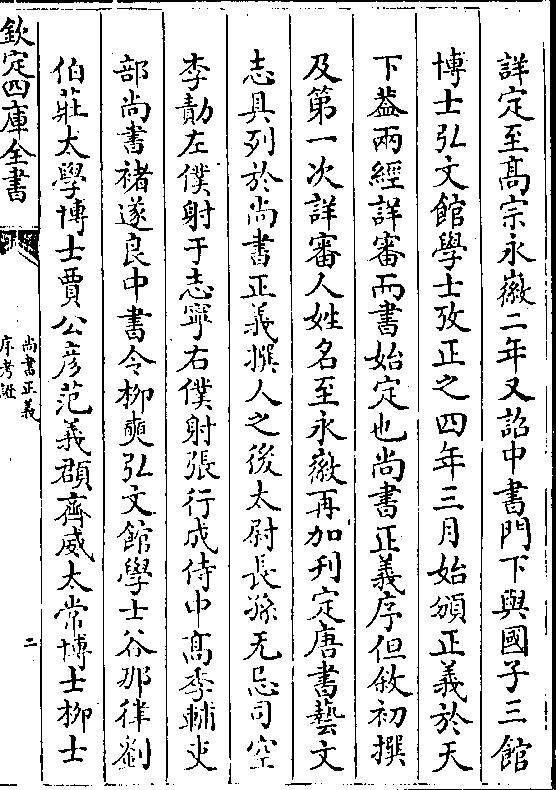 詳定至髙宗永徽二年又詔中書門下與國子三館
博士弘文館學士攷正之四年三月始頒正義於天
下葢兩經詳審而書始定也尚書正義序但敘初撰
及第一次詳審人姓名至永徽再加刋定唐書藝文
志具列於尚書正義撰人之後太尉長孫无忌司空
李勣左僕射于志寧右僕射張行成侍中髙季輔吏
部尚書褚遂良中書令柳奭弘文館學士谷那律劉
伯莊太學博士賈公彦范義頵齊威太常博士柳士
欽定四庫全書
尚書正義
序考證
二